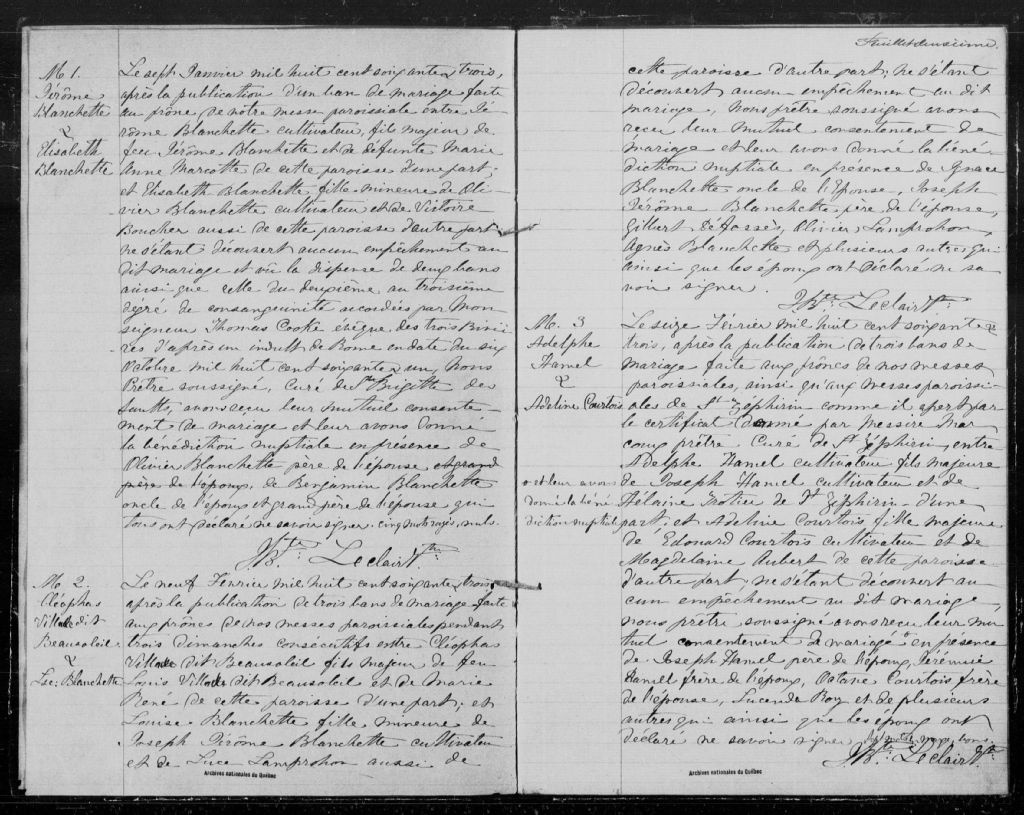 M 1.
Jérôme
Blanchette
&
Elisabeth
Blanchette
Le sept Janvier mil huit cent soixante & trois,
après la publication d'un ban de mariage faite
au prône de notre messe paroissiale entre Jé-
rôme Blanchette cultivateur, fils majeur de
feu Jérôme Blanchette et de défunte Marie
Anne Marcotte de cette paroisse d'une part;
et Elisabeth Blanchette, fille mineure de Oli-
vier Blanchette cultivateur et de Victoire
Boucher aussi de cette paroisse d'autre part
ne s'étant découvert aucun empêchement au
dit mariage et vu la dispense de deux bans
ainsi que celle du deuxième au troisième
dégré de consanguinité accordées par Mon
seigneur Thomas Cooke évêque des trois Riviè
res d'après un indult de Rome en date du six
Octobre mil huit cent soixante & un, Nous
Prêtre soussigné, Curé de Ste Brigitte des
Saults, avons reçu leur mutuel consente-
ment de mariage et leur avons donné
la bénédiction nuptiale en présence de
Olivier Blanchette père de l'épouse et grand
père de l'époux, de Benjamin Blanchette
oncle de l'époux et grand père de l'épouse qui
tous ont déclaré ne savoir signer. cinq mots rayés nuls.
J. Bte Leclair Ptre
M. 2.
Cléophas
dit
Beausoleil
&
Blanchette
Le neuf Février mil huit cent soixante & trois
après la publication de trois bans de mariage faite
aux prônes de nos messes paroissiales pendant
trois dimanches consécutifs entre Cléophas
dit Beausoleil fils majeur de feu
Louis dit Beausoleil et de Marie
René de cette paroisse d'une part; et
Louise Blanchette fille mineure de
Joseph Jérôme Blanchette cultivateur
et de Luce Lamprohon aussi de
Archives nationales du Québec
Feuillet deuxième.
cette paroisse d'autre part; ne s'étant
découvert aucun empêchement au dit
mariage, Nous prêtre soussigné avons
reçu leur mutuel consentement de
mariage et leur avons donné la béné
diction nuptiale en présence de Ignace
Blanchette oncle de l'Epouse, Joseph
Jérôme Blanchette père de l'épouse,
Gilbert Défossés, Olivier Lamprohon,
Agnès Blanchette et plusieurs autres qui
ainsi que les époux ont déclaré ne sa
voir signer.
J. Bte Leclair Ptre
M. 3
Adelphe
Hamel
&
Adeline Courtois
Le seize Février mil huit cent soixante &
trois, après la publication de trois bans de
mariage faite aux prônes de nos messes
paroissiales, ainsi qu'aux messes paroissi-
ales de St Zéphirin comme il apert par
le certificat donné par Messire Mar
coux prêtre Curé de St Zéphirin, entre
Adelphe Hamel cultivateur fils majeure
de Joseph Hamel cultivateur et de
Hélarine Trotier de St Zéphirin d'une
part; et Adeline Courtois fille majeure
de Edouard Courtois cultivateur et de
Magdelaine Aubert de cette paroisse
d'autre part; ne s'étant découvert au
cun empêchement au dit mariage,
nous prêtre soussigné avons reçu leur mu
tuel consentement de mariage ° en présence
de Joseph Hamel père de l'époux, Jérémie
Hamel frère de l'époux, Octave Courtois frère
de l'épouse, Lucenda Roy et de plusieurs
autres qui ainsi que les époux ont
déclaré ne savoir signer. mots en marge bons.
J. Bte Leclair Ptre
° et leur avons
donné la béné
diction nuptiale
Archives nationales du Québec